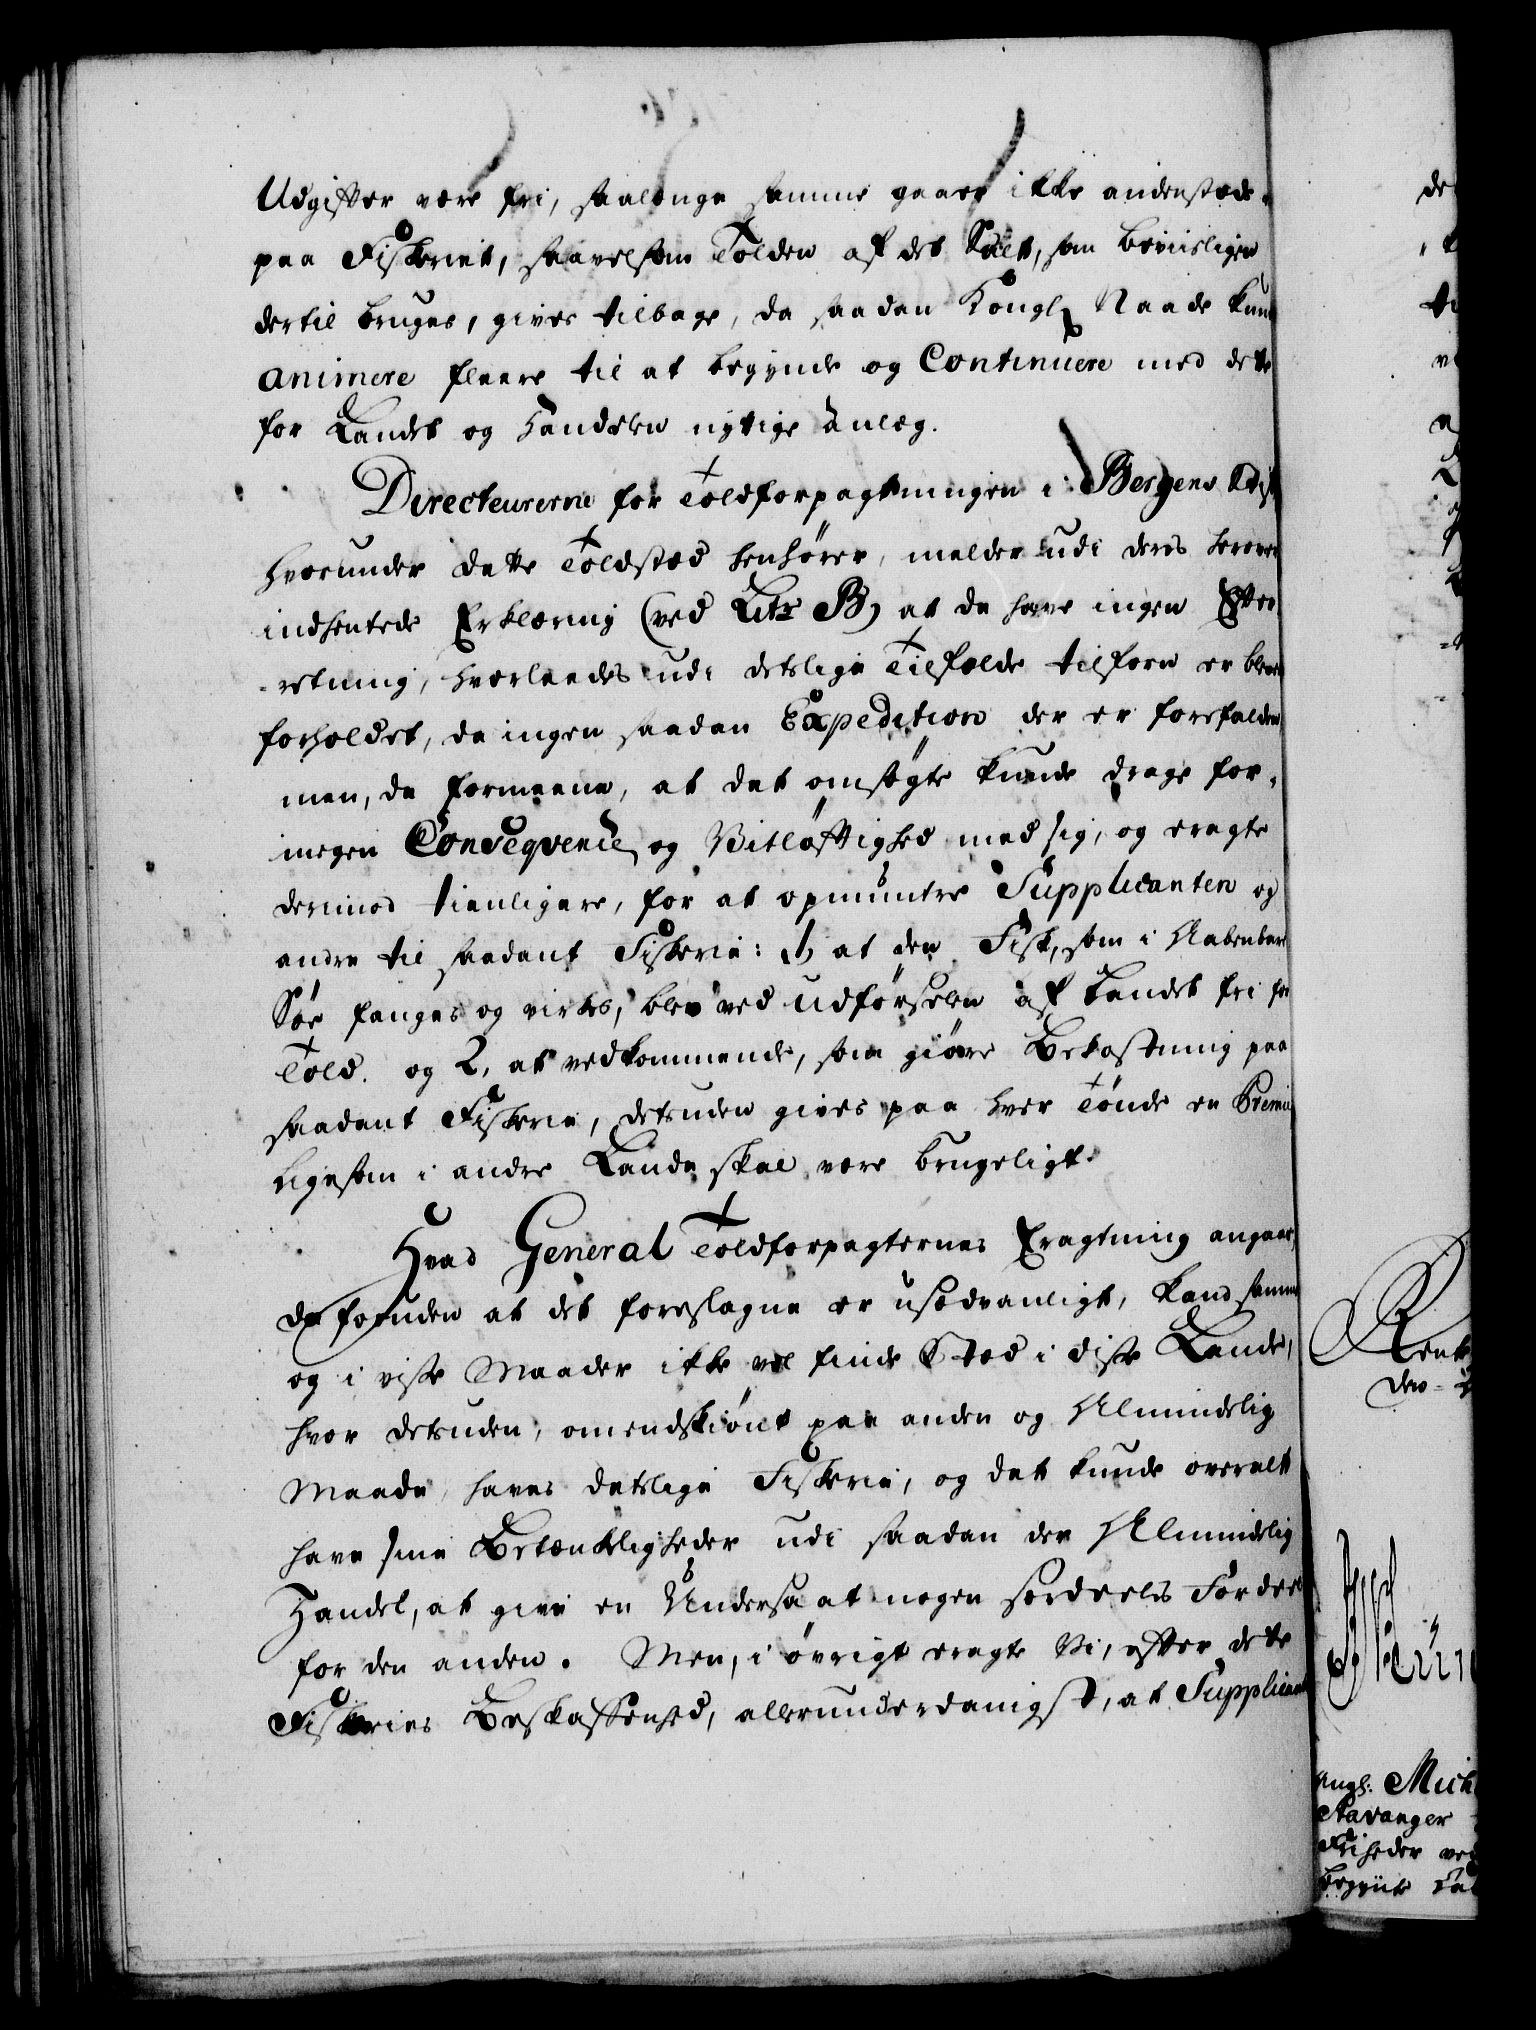 Udgifter være fri, saalænge samme gaaer ikke andenstæds
paa Fiskeriet, saavelsom Tolden af det Salt, som beviisligen
dertil bruges, gives tilbage, da saadan Kongl. Naade kunde
animere fleere til at begynde og Continuere med dette
for Landet og Handelen nyttige Anlæg.
Directeurerne for Toldforpagtningen i Bergens Stift
hvorunder dette Toldsted henhører, melder udi deres herover
indhentede Erklæring (ved Litr B) at de have ingen Efter-
-retning, hvorleedes udi deslige Tilfælde tilforn er bleven
forholdet, da ingen saadan Expedition der er forefalden
men, de formeene, at det omsøgte kunde drage for-
megen Conseqvence og Vitløftighed med sig, og eragte
derimod tienligere, for at opmuntre Supplicanten og
andre til saadant Fiskerie: 1, at den Fisk, som i Aabenbare
Søe fanges og virkes, blev ved udførselen af Landet fri for
Told. og 2, at vedkommende, som giøre Bekostning paa
saadant Fiskerie, desuden gives paa hver Tønde en Premie
ligesom i andre Lande skal være brugeligt.
Hvad General Toldforpagternes Eragtning angaaer,
da foruden at det foreslagne er usædvanligt, kand samme
og i visse Maader ikke vel finde Sted i disse Lande,
hvor desuden, omendskiønt paa anden og Almindelig
Maade, haves deslige Fiskerie, og det kunde overalt
have sine Betænkeligheder udi saadan den Almindelig
Handel, at give en Undersaat nogen særdeeles Fordeel
for den anden. Men, i øvrigt eragte Vi, efter dette
Fiskeries Beskaffenhed, allerunderdanigst, at Supplicant
Rente
den
Angl: Mich
Stavanger
Friheder ved